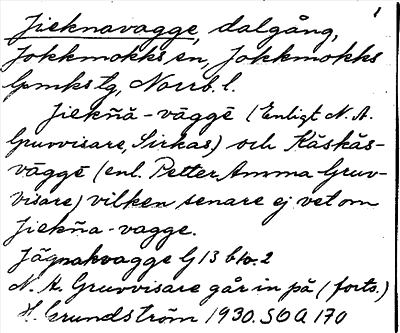 1
Jieknavagge, dalgång,
Jokkmokks sn, Jokkmokks
lpmks tg, Norrb. l.
Jiekŋ̃ă-vāggē (Enligt N. A.
Gruvvisare, Sirkas) och Kăskăs-
vāggē (enl. Petter Amma Gruv-
visare) vilken senare ej vet om
Jiekŋ̃a-vagge.
Jäg̣nakvagge G 13 b 10.2
N. A. Gruvvisare går in på (forts.)
H. Grundström 1930. SOA 170